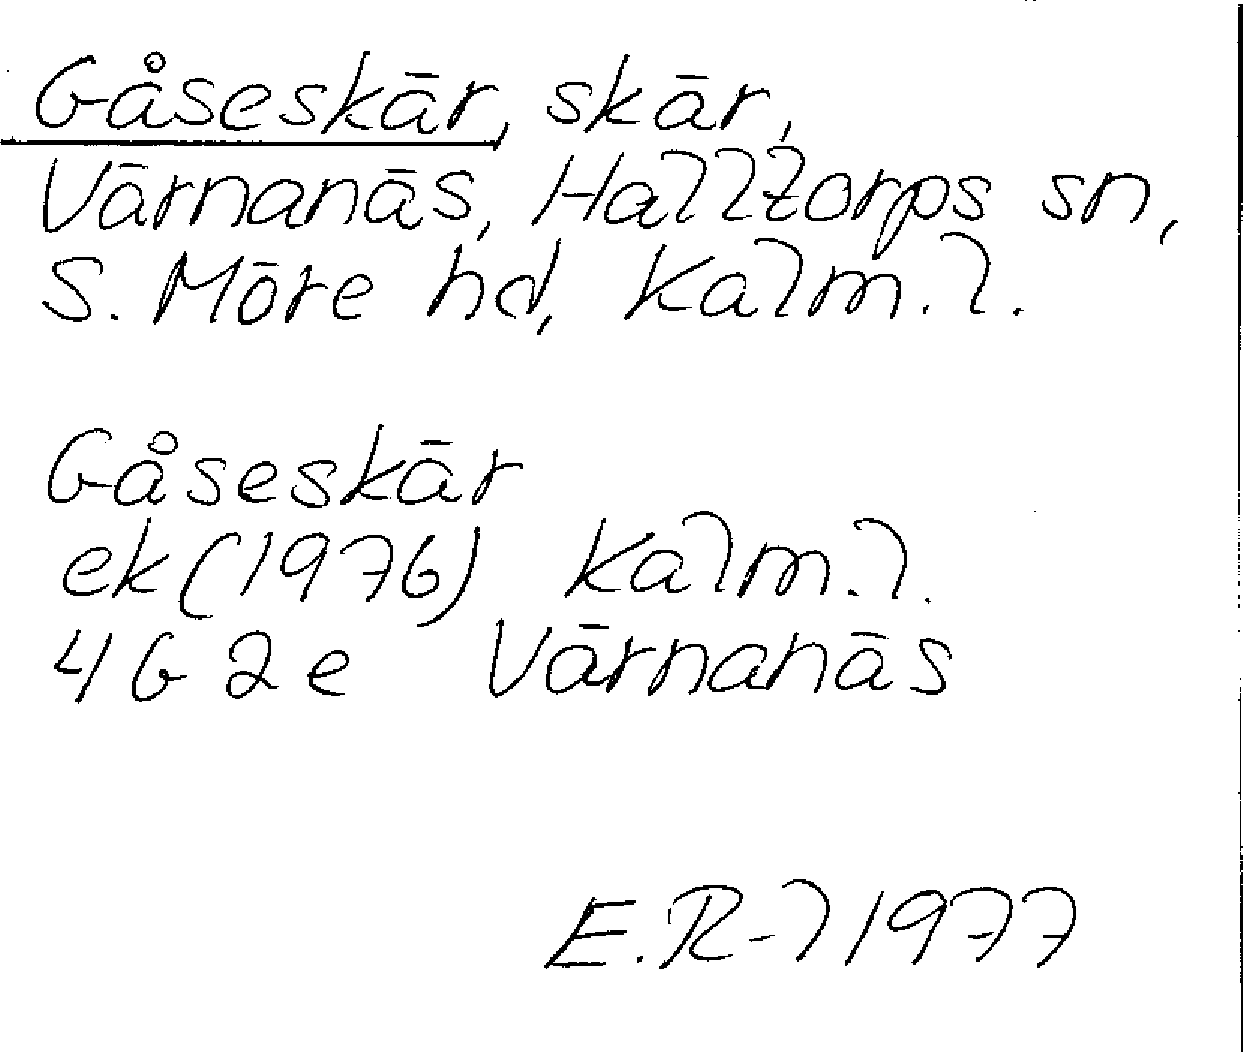 Gåseskär, skär,
Värnanäs, Halltorps sn,
S. Möre hd, Kalm. l.
Gåseskär
ek (1976) Kalm. l.
4G2e Värnanäs
E. R-l 1977